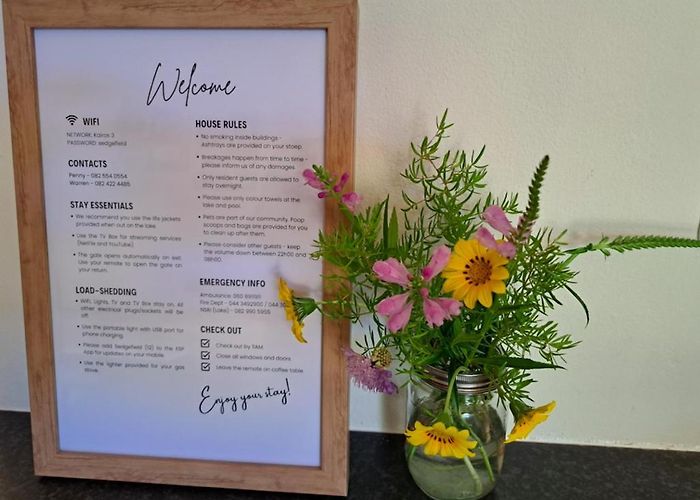 Welcome
WIFI
NETWORK: Kairos 3
PASSWORD: sedgefield
CONTACTS
Penny - 082 554 0554
Warren - 082 422 4485
STAY ESSENTIALS
We recommend you use the life jackets
provided when out on the lake.
Use the TV Box for streaming services
(Netflix and YouTube).
The gate opens automatically on exit.
Use your remote to open the gate on
your return.
LOAD-SHEDDING
Wifi, Lights, TV and TV Box stay on. All
other electrical plugs/sockets will be
off.
Use the portable light with USB port for
phone charging.
Please add Sedgefield (12) to the ESP
App for updates on your mobile.
Use the lighter provided for your gas
stove.
HOUSE RULES
No smoking inside buildings -
Ashtrays are provided on your stoep.
Breakages happen from time to time -
please inform us of any damages.
Only resident guests are allowed to
stay overnight.
Please use only colour towels at the
lake and pool.
Pets are part of our community. Poop
scoops and bags are provided for you
to clean up after them.
Please consider other guests - keep
the volume down between 22h00 and
08h00.
EMERGENCY INFO
Ambulance:
Fire Dept - 044 3492900 / 044
NSRI (Lake) - 082 990 5955
CHECK OUT
Check out by 11AM.
Close all windows and doors
Leave the remote on coffee table
Enjoy your stay!